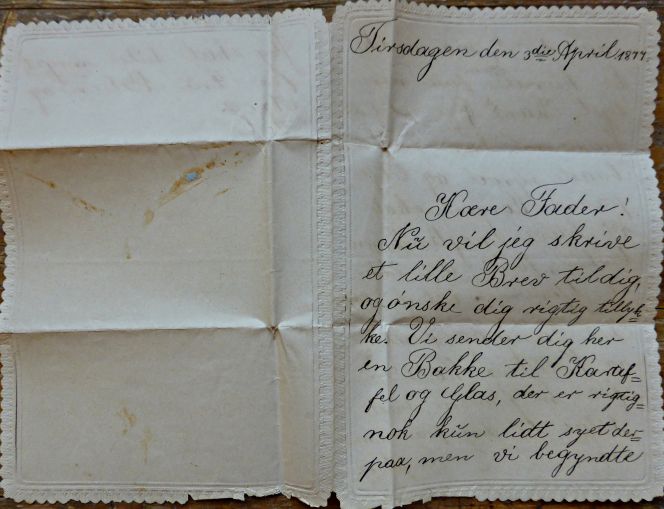 Tirsdagen den 3die April 1877.
Kære Fader!
Nu vil jeg skrive
et lille Brev til dig,
og ønske dig rigtig tillyk=
ke. Vi sender dig her
en Bakke til Karaf=
fel og Glas, der er rigtig=
nok kun lidt syet der=
paa, men vi begyndte